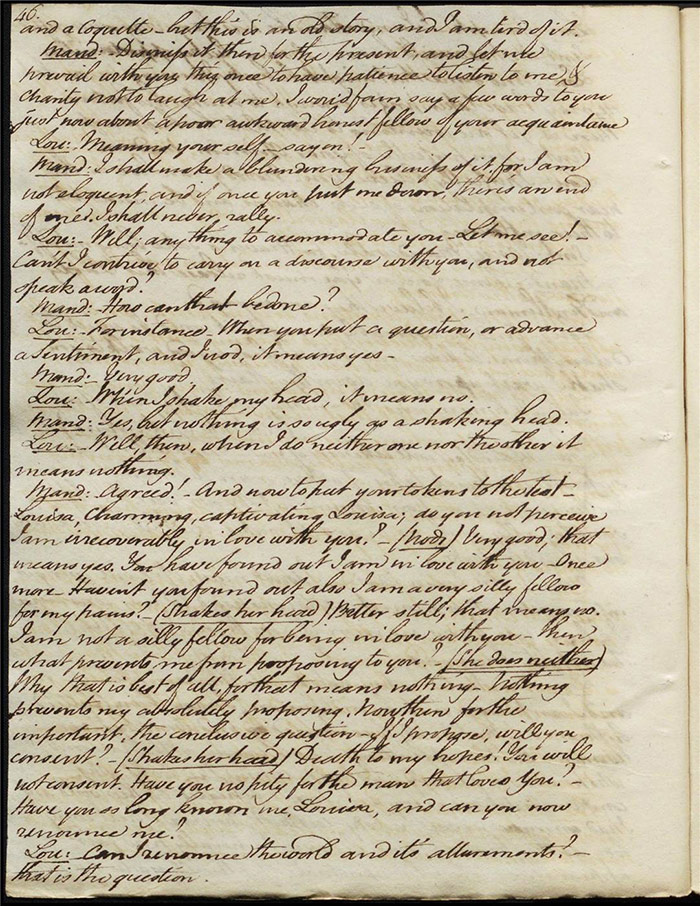 46.
and a Coquette - but this is an old story, and I am tir'd of it.
Mand: - Dismiss it then for the present, and let me
prevail with you this once to have patience to listen to me &
charity not to laugh at me. I wou'd fain say a few words to you
just now about a poor awkward honest fellow of your acquaintance
Lou: - Meaning your self - say on! -
Mand: I shall make a blundering business of it, for I am
not eloquent, and if once you put me down, there's an end
of me. I shall never, rally.
Lou: - Well; any thing to accommodate you - Let me see! -
Can't I contrive to carry on a discourse with you, and not
speak a word?
Mand: - How can that be done?
Lou: - For instance. When you put a question, or advance
a Sentiment, and I nod, it means yes -
Mand: - Very good.
Lou: - When I shake my head, it means no.
Mand: - Yes, but nothing is so ugly as a shaking head.
Lou: - Well, then, when I do neither one nor the other it
means nothing.
Mand: - Agreed! - And now to put your tokens to the test -
Louisa, Charming, captivating Louisa; do you not perceive
I am irrecoverably in love with you? - (Nods) Very good; that
means yes. You have found out I am in love with you - Once
more - Havn't you found out also I am a very silly fellow
for my pains? - (Shakes her head) Better still; that means no.
I am not a silly fellow for being in love with you - Then
what prevents me from proposing to you? - (She does neither)
Why that is best of all, for that means nothing - Nothing
prevents my absolutely proposing. Now then for the
important, the conclusive question - if I propose, will you
consent? - (Shakes her head) Death to my hopes! You will
not consent. Have you no pity for the man that loves You? -
Have you so long known me, Louisa, and can you now
renounce me?
Lou: - Can I renounce the world and it's allurements? -
that is the question.